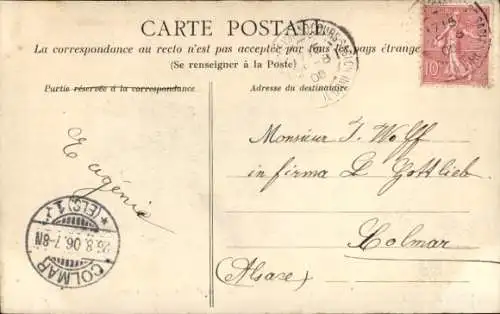 CARTE POSTALE
La correspondance au recto n'est pas acceptée par tous les pays étrange
(Se renseigner à la Poste)
Partie réservée à la correspondance
Adresse du destinataire
10
Monsieur J. Wolff
in firma L Gottlieb
Colmar
(Alsace)
Eugénie
*(ELS.) 1 r*
26.8.06.7-8N
COLMAR